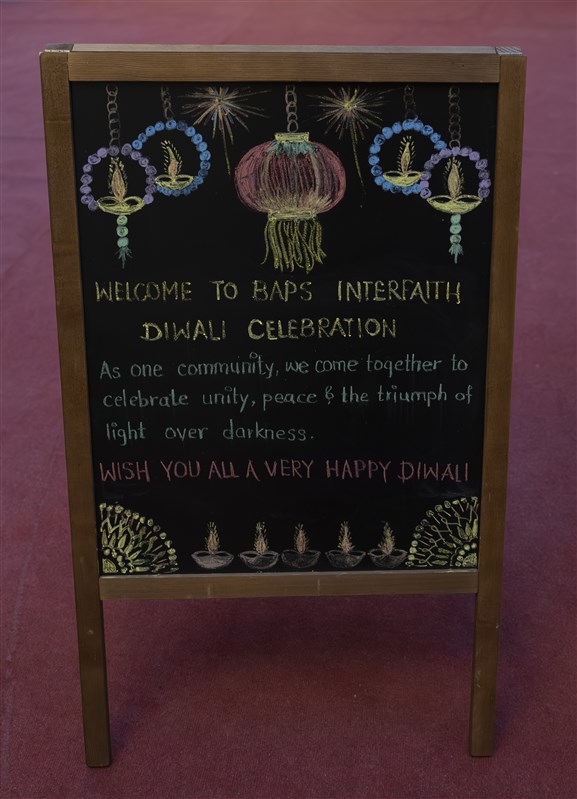 WELCOME TO BAPS INTERFAITH
DIWALI CELEBRATION
As one community, we come together to
celebrate unity, peace & the triumph of
light over darkness.
WISH YOU ALL A VERY HAPPY DIWALI